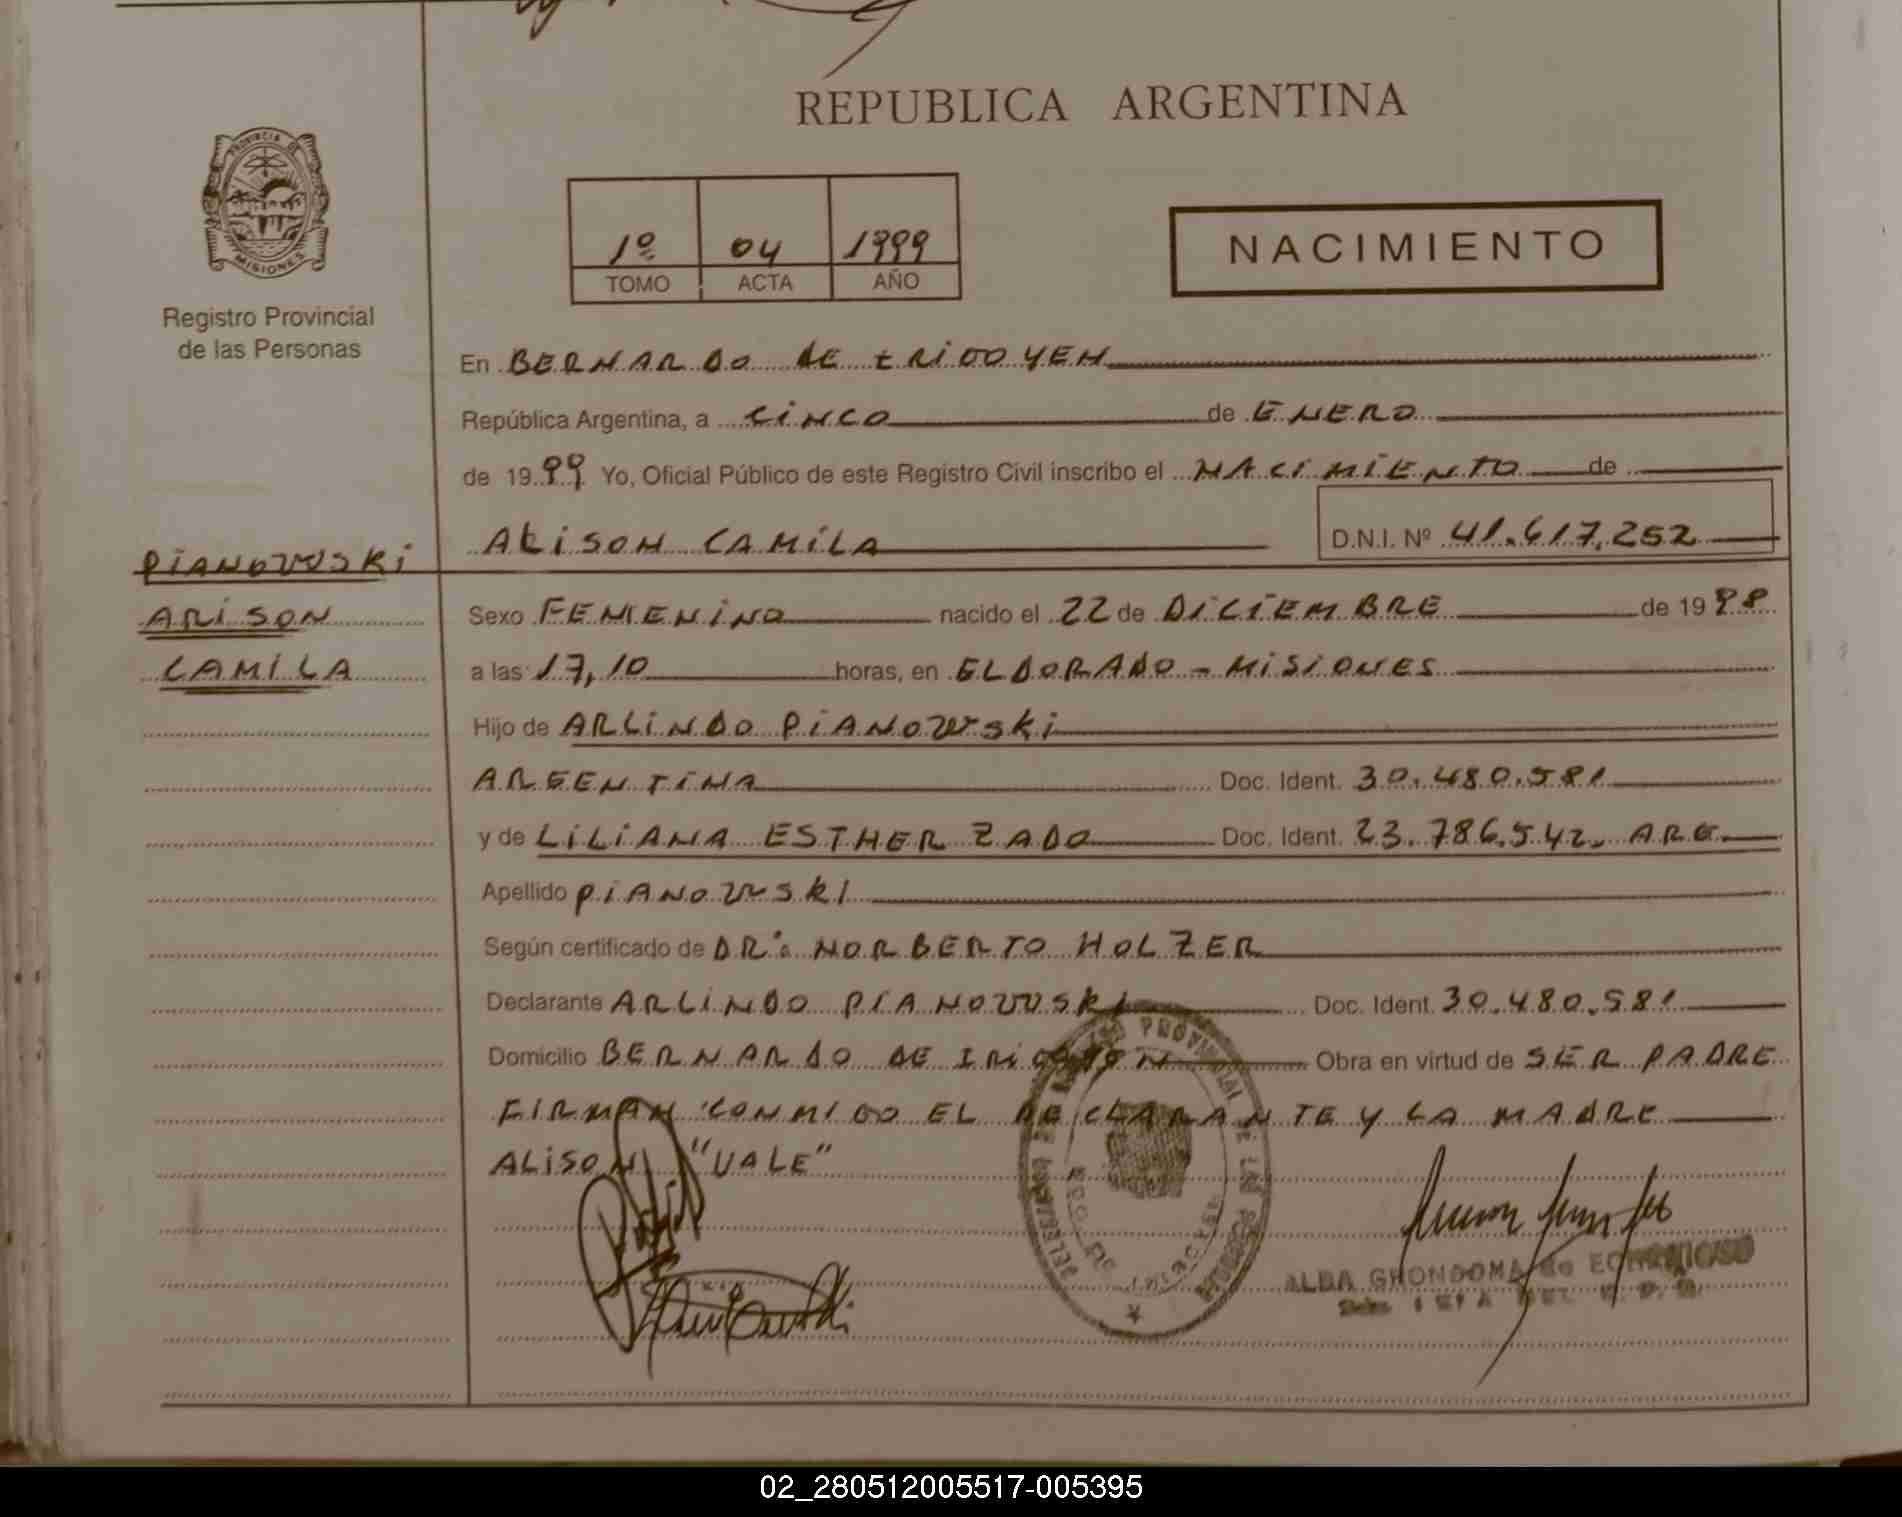 REPUBLICA ARGENTINA
PROVINCIA DE
MISIONES
Registro Provincial
de las Personas
1º 04 1999
TOMO ACTA AÑO
NACIMIENTO
En BERNARDO DE IRIGOYEN
República Argentina, a CINCO de ENERO
de 1999 Yo, Oficial Público de este Registro Civil inscribo el NACIMIENTO de
ALISON CAMILA D.N.I. Nº 41.617.252
PIANOWSKI
ARISON
CAMILA
Sexo FEMENINO nacido el 22 de DICIEMBRE de 1998
a las 17,10 horas, en ELDORADO - MISIONES
Hijo de ARLINDO PIANOWSKI
ARGENTINA Doc. Ident. 30.480.581
y de LILIANA ESTHER ZADO Doc. Ident. 23.786.542. ARG.
Apellido PIANOWSKI
Según certificado de DR. NORBERTO HOLZER
Declarante ARLINDO PIANOWSKI Doc. Ident. 30.480.581
Domicilio BERNARDO DE IRIGOYEN Obra en virtud de SER PADRE
FIRMAN CONMIGO EL DECLARANTE Y LA MADRE
ALISON "VALE"
PROVINCIAL DE LAS PERSONAS
ALBA GRONDONA de
02_280512005517-005395